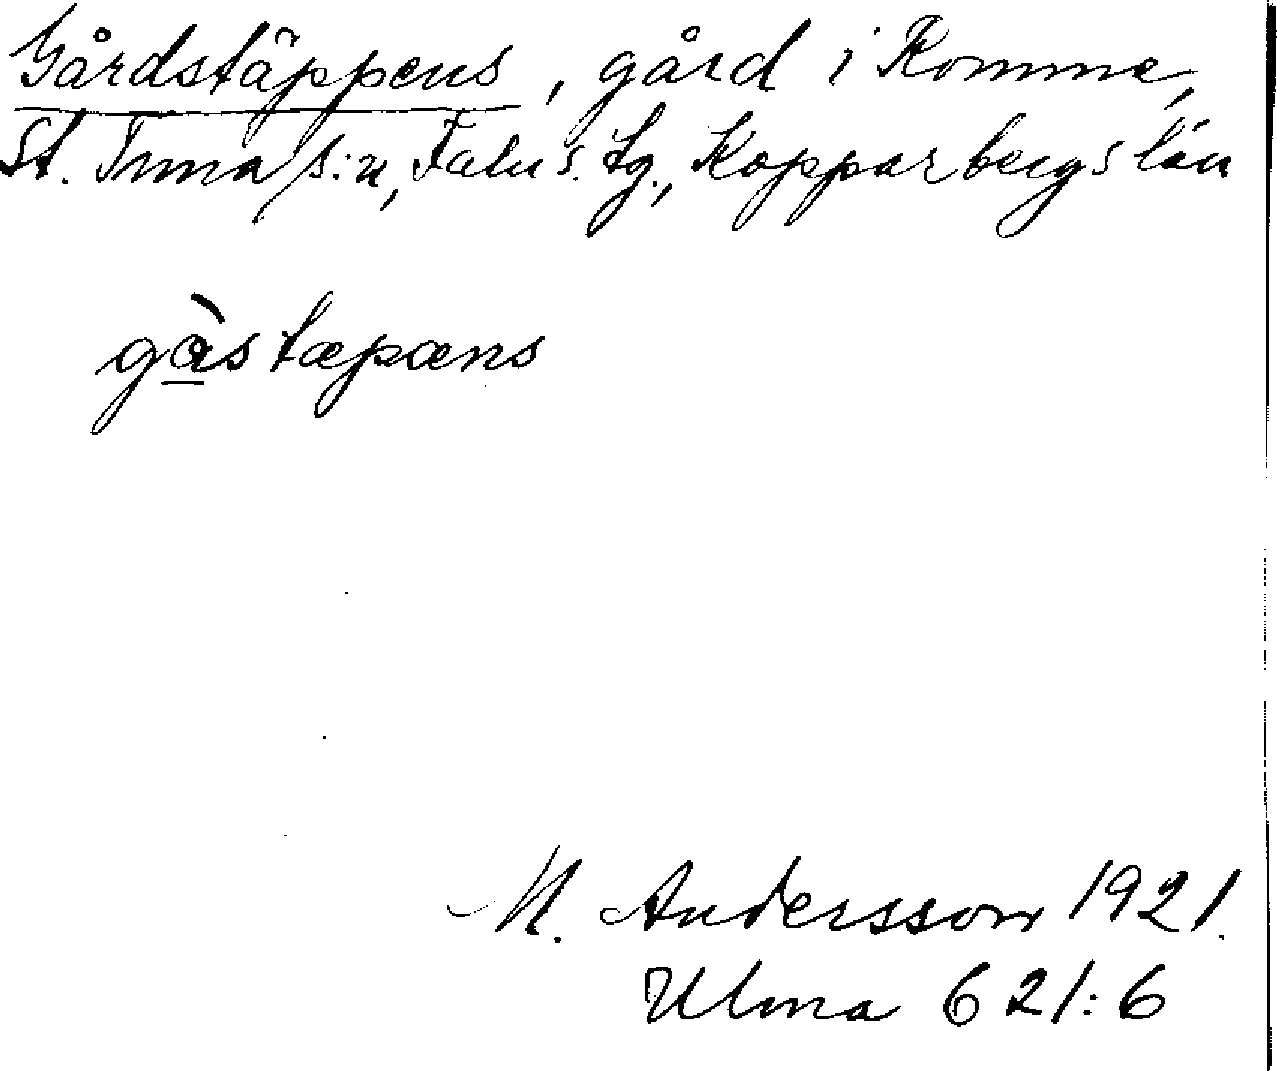 Gårdstäppens, gård i Romme,
St. Tuna s:n, Falu s. tg., Kopparbergs län
gàstæpæns
M. Andersson 1921.
Ulma 621:6